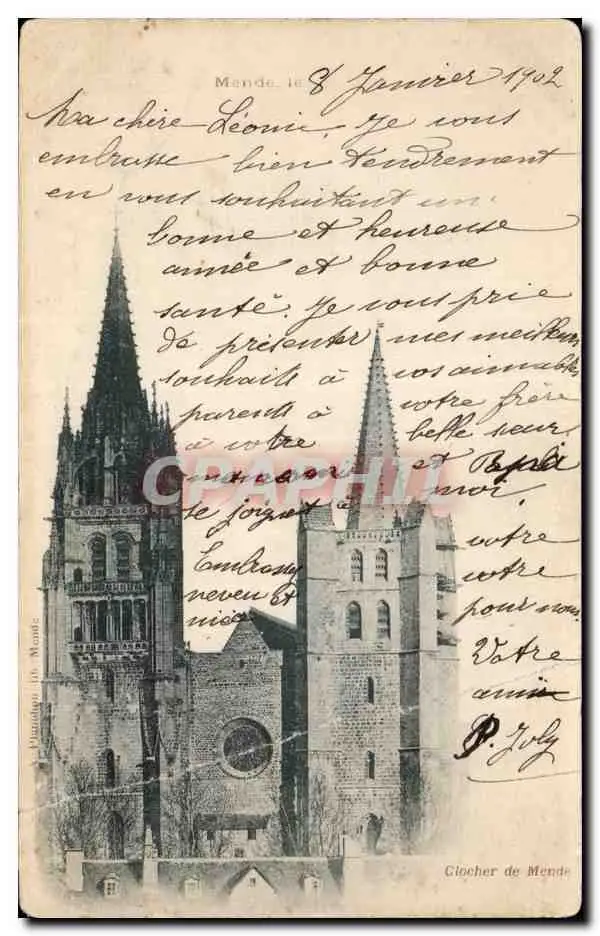 Mende, le 8 Janvier 1902
Ma chère Léonie. Je vous
embrasse bien tendrement
en vous souhaitant un
bonne et heureuse
année et bonne
santé. Je vous prie
de présenter mes meilleurs
souhaits à vos aimables
parents à votre frère
à votre belle seur
maman et
se joignent à moi.
CPAPHIL
Embrassez votre
neveu et votre
nièce pour nous.
Votre
amie
P. Joly
Planchon lib. Mende
Clocher de Mende